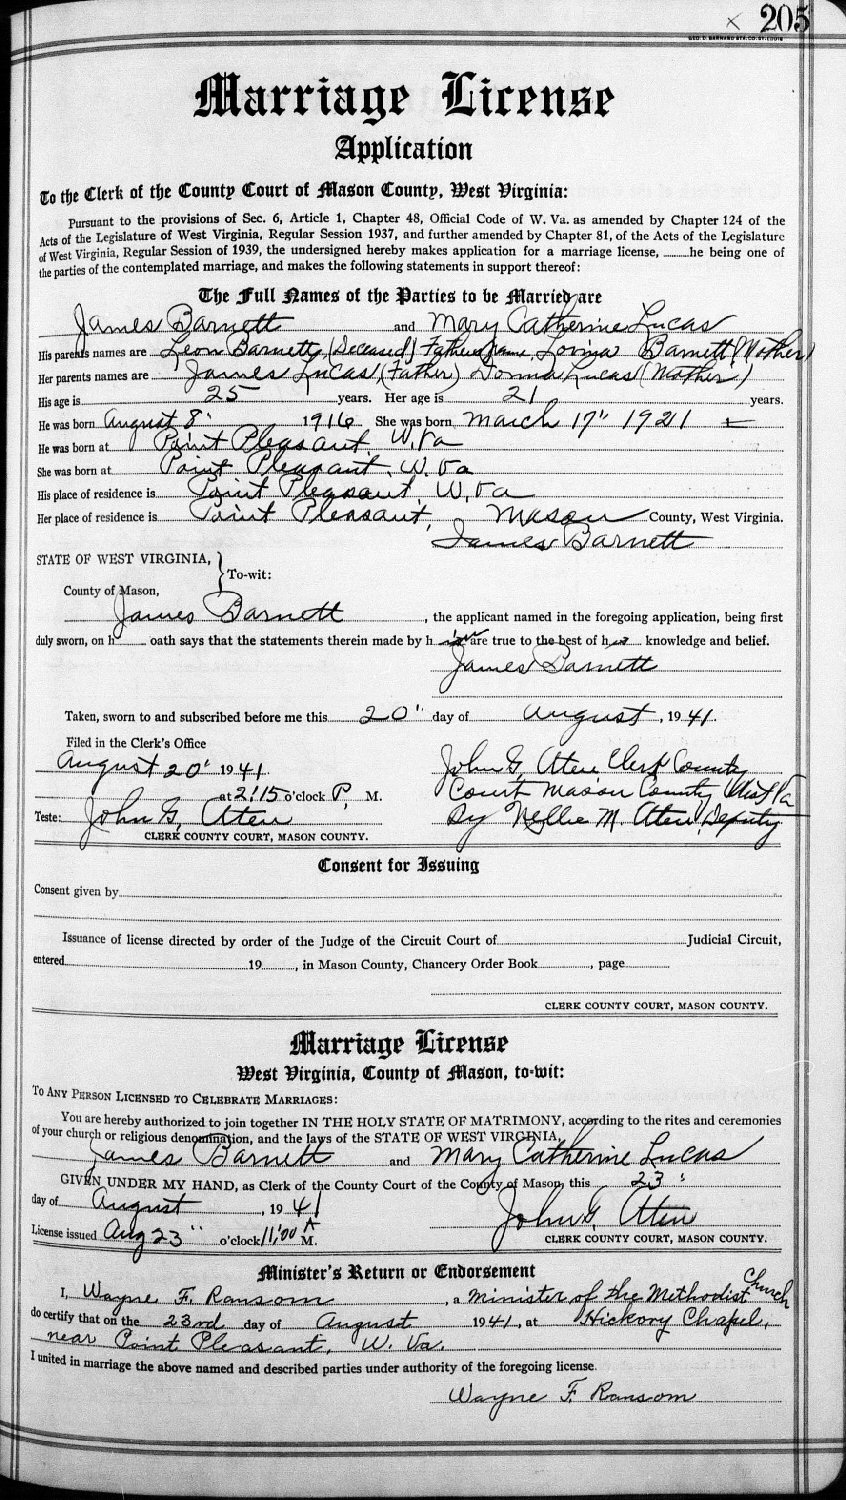 x 205
GEO. D. BARNARD STA. CO. ST. LOUIS
Marriage License
Application
To the Clerk of the County Court of Mason County, West Virginia:
Pursuant to the provisions of Sec. 6, Article 1, Chapter 48, Official Code of W. Va. as amended by Chapter 124 of the
Acts of the Legislature of West Virginia, Regular Session 1937, and further amended by Chapter 81, of the Acts of the Legislature
of West Virginia, Regular Session of 1939, the undersigned hereby makes application for a marriage license, ........he being one of
the parties of the contemplated marriage, and makes the following statements in support thereof:
The Full Names of the Parties to be Married are
James Barnett and Mary Catherine Lucas
His parents names are Leon Barnett, (Deceased) Father Barnett (Mother)
Her parents names are James Lucas, (Father) Donna Lucas (Mother)
His age is 25 years. Her age is 21 years.
He was born August 8" 1916 She was born March 17" 1921
He was born at Point Pleasant, W. Va
She was born at Point Pleasant, W. Va
His place of residence is Point Pleasant, W. Va
Her place of residence is Point Pleasant, Mason County, West Virginia.
James Barnett
STATE OF WEST VIRGINIA,
To-wit:
County of Mason,
James Barnett, the applicant named in the foregoing application, being first
duly sworn, on h...... oath says that the statements therein made by h im are true to the best of h is knowledge and belief.
James Barnett
Taken, sworn to and subscribed before me this 20" day of August, 1941.
Filed in the Clerk's Office
August 20" 1941 John G. Aten Clerk County
at 2:15 o'clock P. M. Court Mason County West Va
Teste: John G. Aten By Nellie M. Aten, Deputy
CLERK COUNTY COURT, MASON COUNTY.
Consent for Issuing
Consent given by
Issuance of license directed by order of the Judge of the Circuit Court of Judicial Circuit,
entered 19, in Mason County, Chancery Order Book, page
CLERK COUNTY COURT, MASON COUNTY.
Marriage License
West Virginia, County of Mason, to-wit:
To Any Person Licensed to Celebrate Marriages:
You are hereby authorized to join together IN THE HOLY STATE OF MATRIMONY, according to the rites and ceremonies
of your church or religious denomination, and the laws of the STATE OF WEST VIRGINIA,
James Barnett and Mary Catherine Lucas
GIVEN UNDER MY HAND, as Clerk of the County Court of the County of Mason, this 23"
day of August, 1941 John G. Aten
License issued Aug 23" o'clock 11:00 A M. CLERK COUNTY COURT, MASON COUNTY.
Minister's Return or Endorsement
I, Wayne F. Ransom, a Minister of the Methodist Church
do certify that on the 23rd day of August 1941, at Hickory Chapel,
near Point Pleasant, W. Va.
I united in marriage the above named and described parties under authority of the foregoing license.
Wayne F. Ransom